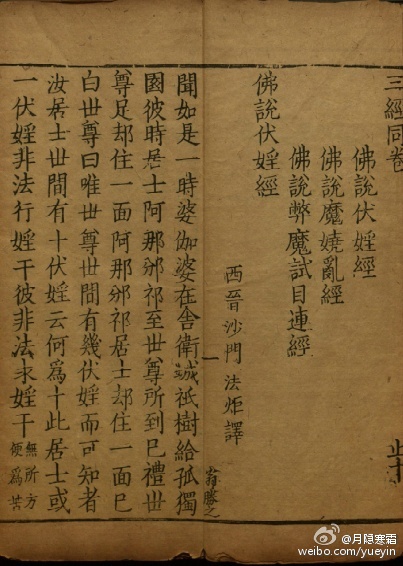 三經同卷
佛說伏婬經
佛說魔嬈亂經
佛說弊魔試目連經
佛說伏婬經
西晉沙門法炬譯
聞如是一時婆伽婆在舍衛城祇樹給孤獨
國彼時居士阿那邠祁至世尊所到已禮世
尊足却住一面阿那邠祁居士却住一面已
白世尊曰唯世尊世間有幾伏婬而可知者
汝居士世間有十伏婬云何為十此居士或
一伏婬非法行婬干彼非法求婬干無所方便為苦
@月隐寒霜
weibo.com/yueyin